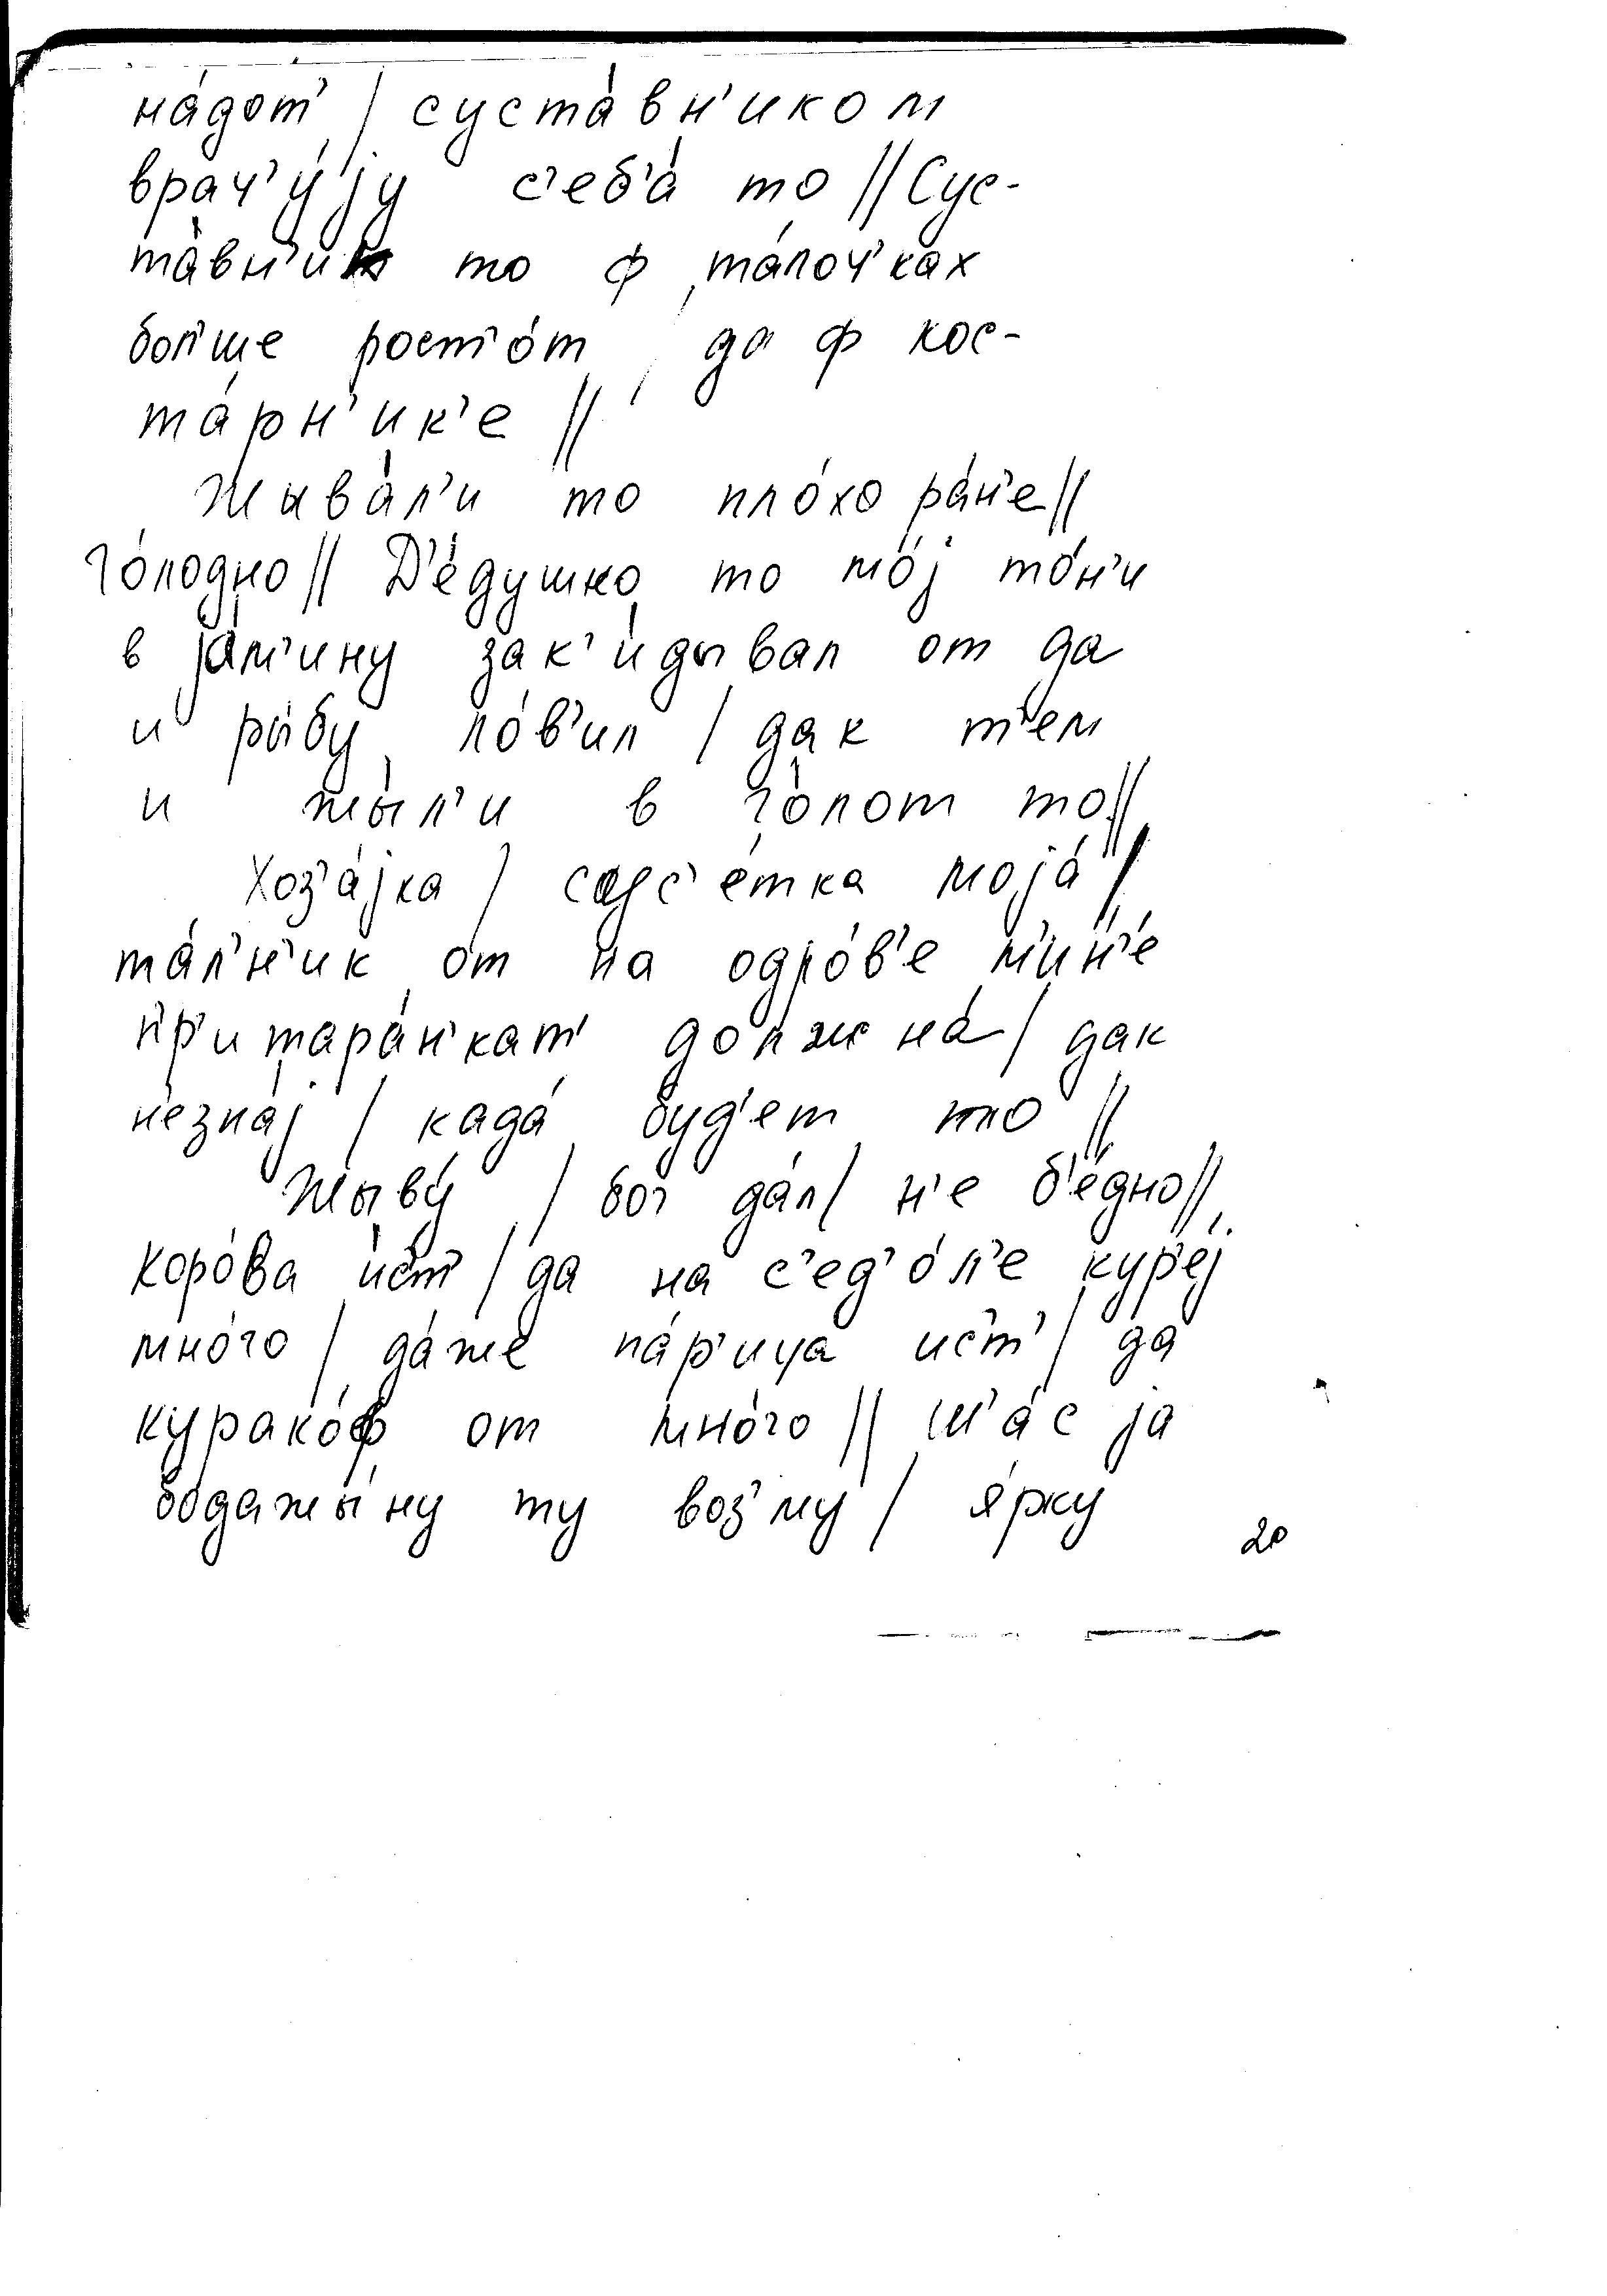 на́дот' / суста́вн'иком
врач'у́јy с'еб'а́ то // Сус-
та́вн'ик то ф та́лоч'ках
бол'ше рост'о́т, да ф кос-
та́рн'ик'е //
Жыва́л'и то пло́хо ра́н'е //
го́лодно // Д'е́душко то мо́ј то́н'и
в ја́м'ину зак'и́дывал от да
и ры́бу ло́в'ил / дак т'ем
и жы́л'и в го́лот то //
Хоз'а́јка / сос'е́тка моја́ /
та́л'н'ик от на одро́в'е м'ин'е́
пр'итара́н'кат' должна́ / дак
н'езна́ј / када́ буд'ет то //
Жыву́ / бог да́л / н'е б'е́дно //
коро́ва ис'т' / да на с'ед'о́л'е кур'е́ј
мно́го / да́же па́р'ица ис'т' / да
курако́ф от мно́го // Ш'а́с ја
бодажы́ну ту воз'му́ / я́рку
20